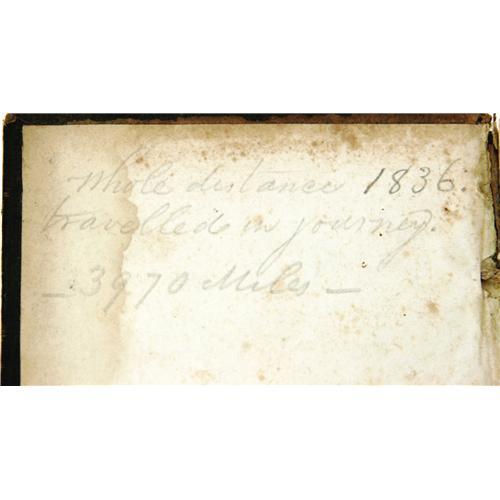 Whole distance 1836.
travelled in journey.
- 3970 Miles -